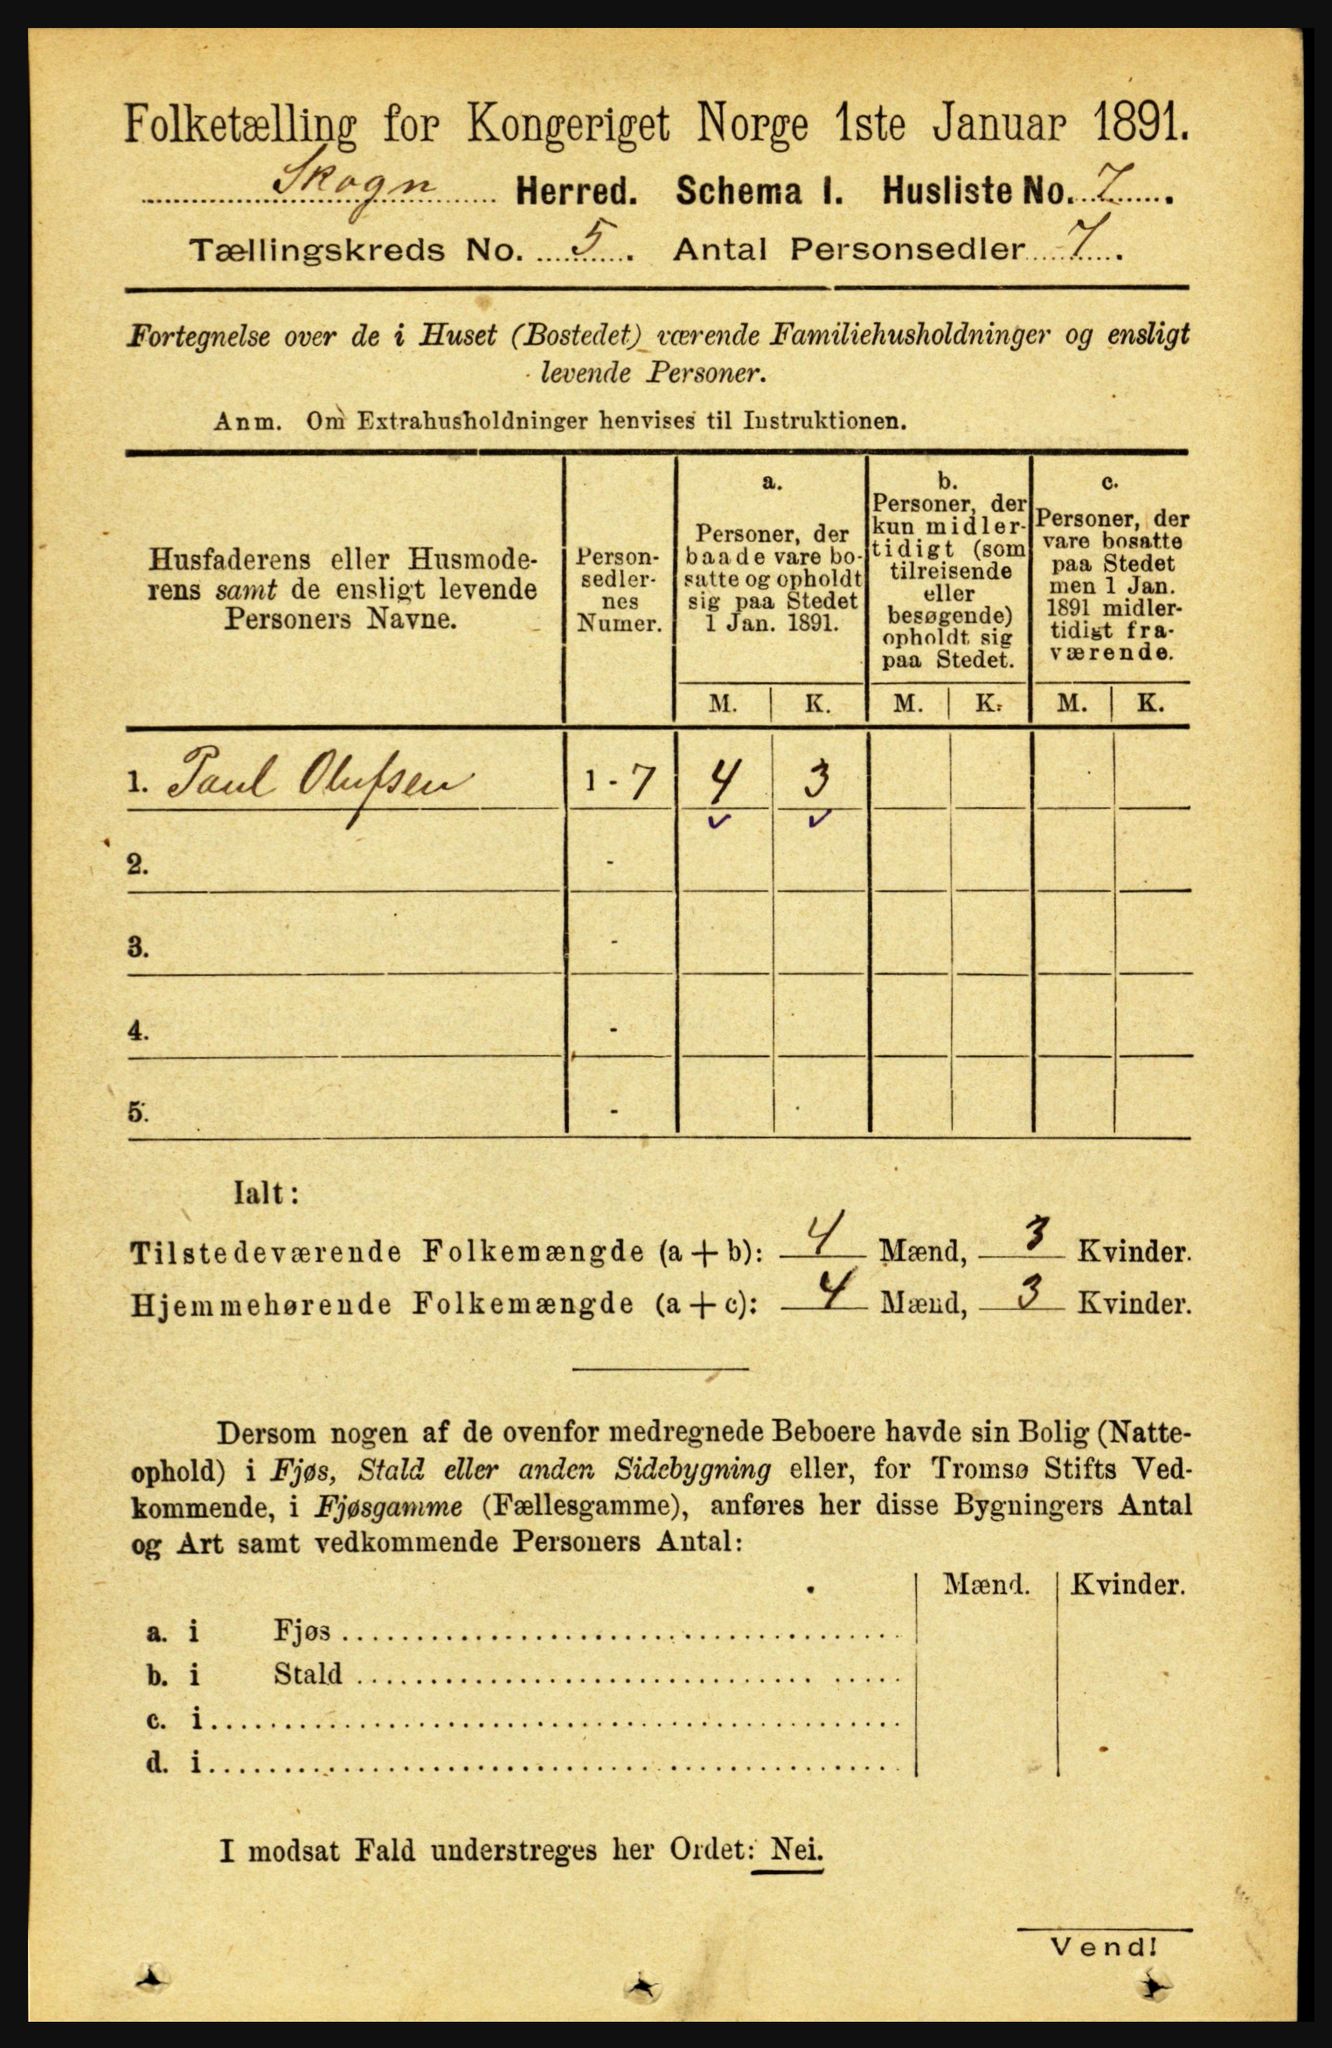 Folketælling for Kongeriget Norge 1ste Januar 1891.
Skogn Herred. Schema I. Husliste No. 7.
Tællingskreds No. 5. Antal Personsedler 7.
Fortegnelse over de i Huset (Bostedet) værende Familiehusholdninger og ensligt
levende Personer.
Anm. Om Extrahusholdninger henvises til Instruktionen.
Husfaderens eller Husmode-
rens samt de ensligt levende
Personers Navne.
Person-
sedler-
nes
Numer.
a.
Personer, der
baade vare bo-
satte og opholdt
sig paa Stedet
1 Jan. 1891.
b.
Personer, der
kun midler-
tidigt (som
tilreisende
eller
besøgende)
opholdt sig
paa Stedet.
c.
Personer, der
vare bosatte
paa Stedet
men 1 Jan.
1891 midler-
tidigt fra-
værende.
M. K. M. K. M. K.
1. Paul Olufsen 1 - 7 4 3
2. -
3. -
4. -
5. -
Ialt:
Tilstedeværende Folkemængde (a + b): 4 Mænd, 3 Kvinder.
Hjemmehørende Folkemængde (a + c): 4 Mænd, 3 Kvinder.
Dersom nogen af de ovenfor medregnede Beboere havde sin Bolig (Natte-
ophold) i Fjøs, Stald eller anden Sidebygning eller, for Tromsø Stifts Ved-
kommende, i Fjøsgamme (Fællesgamme), anføres her disse Bygningers Antal
og Art samt vedkommende Personers Antal:
Mænd. Kvinder.
a. i Fjøs
b. i Stald
c. i
d. i
I modsat Fald understreges her Ordet: Nei.
Vend!